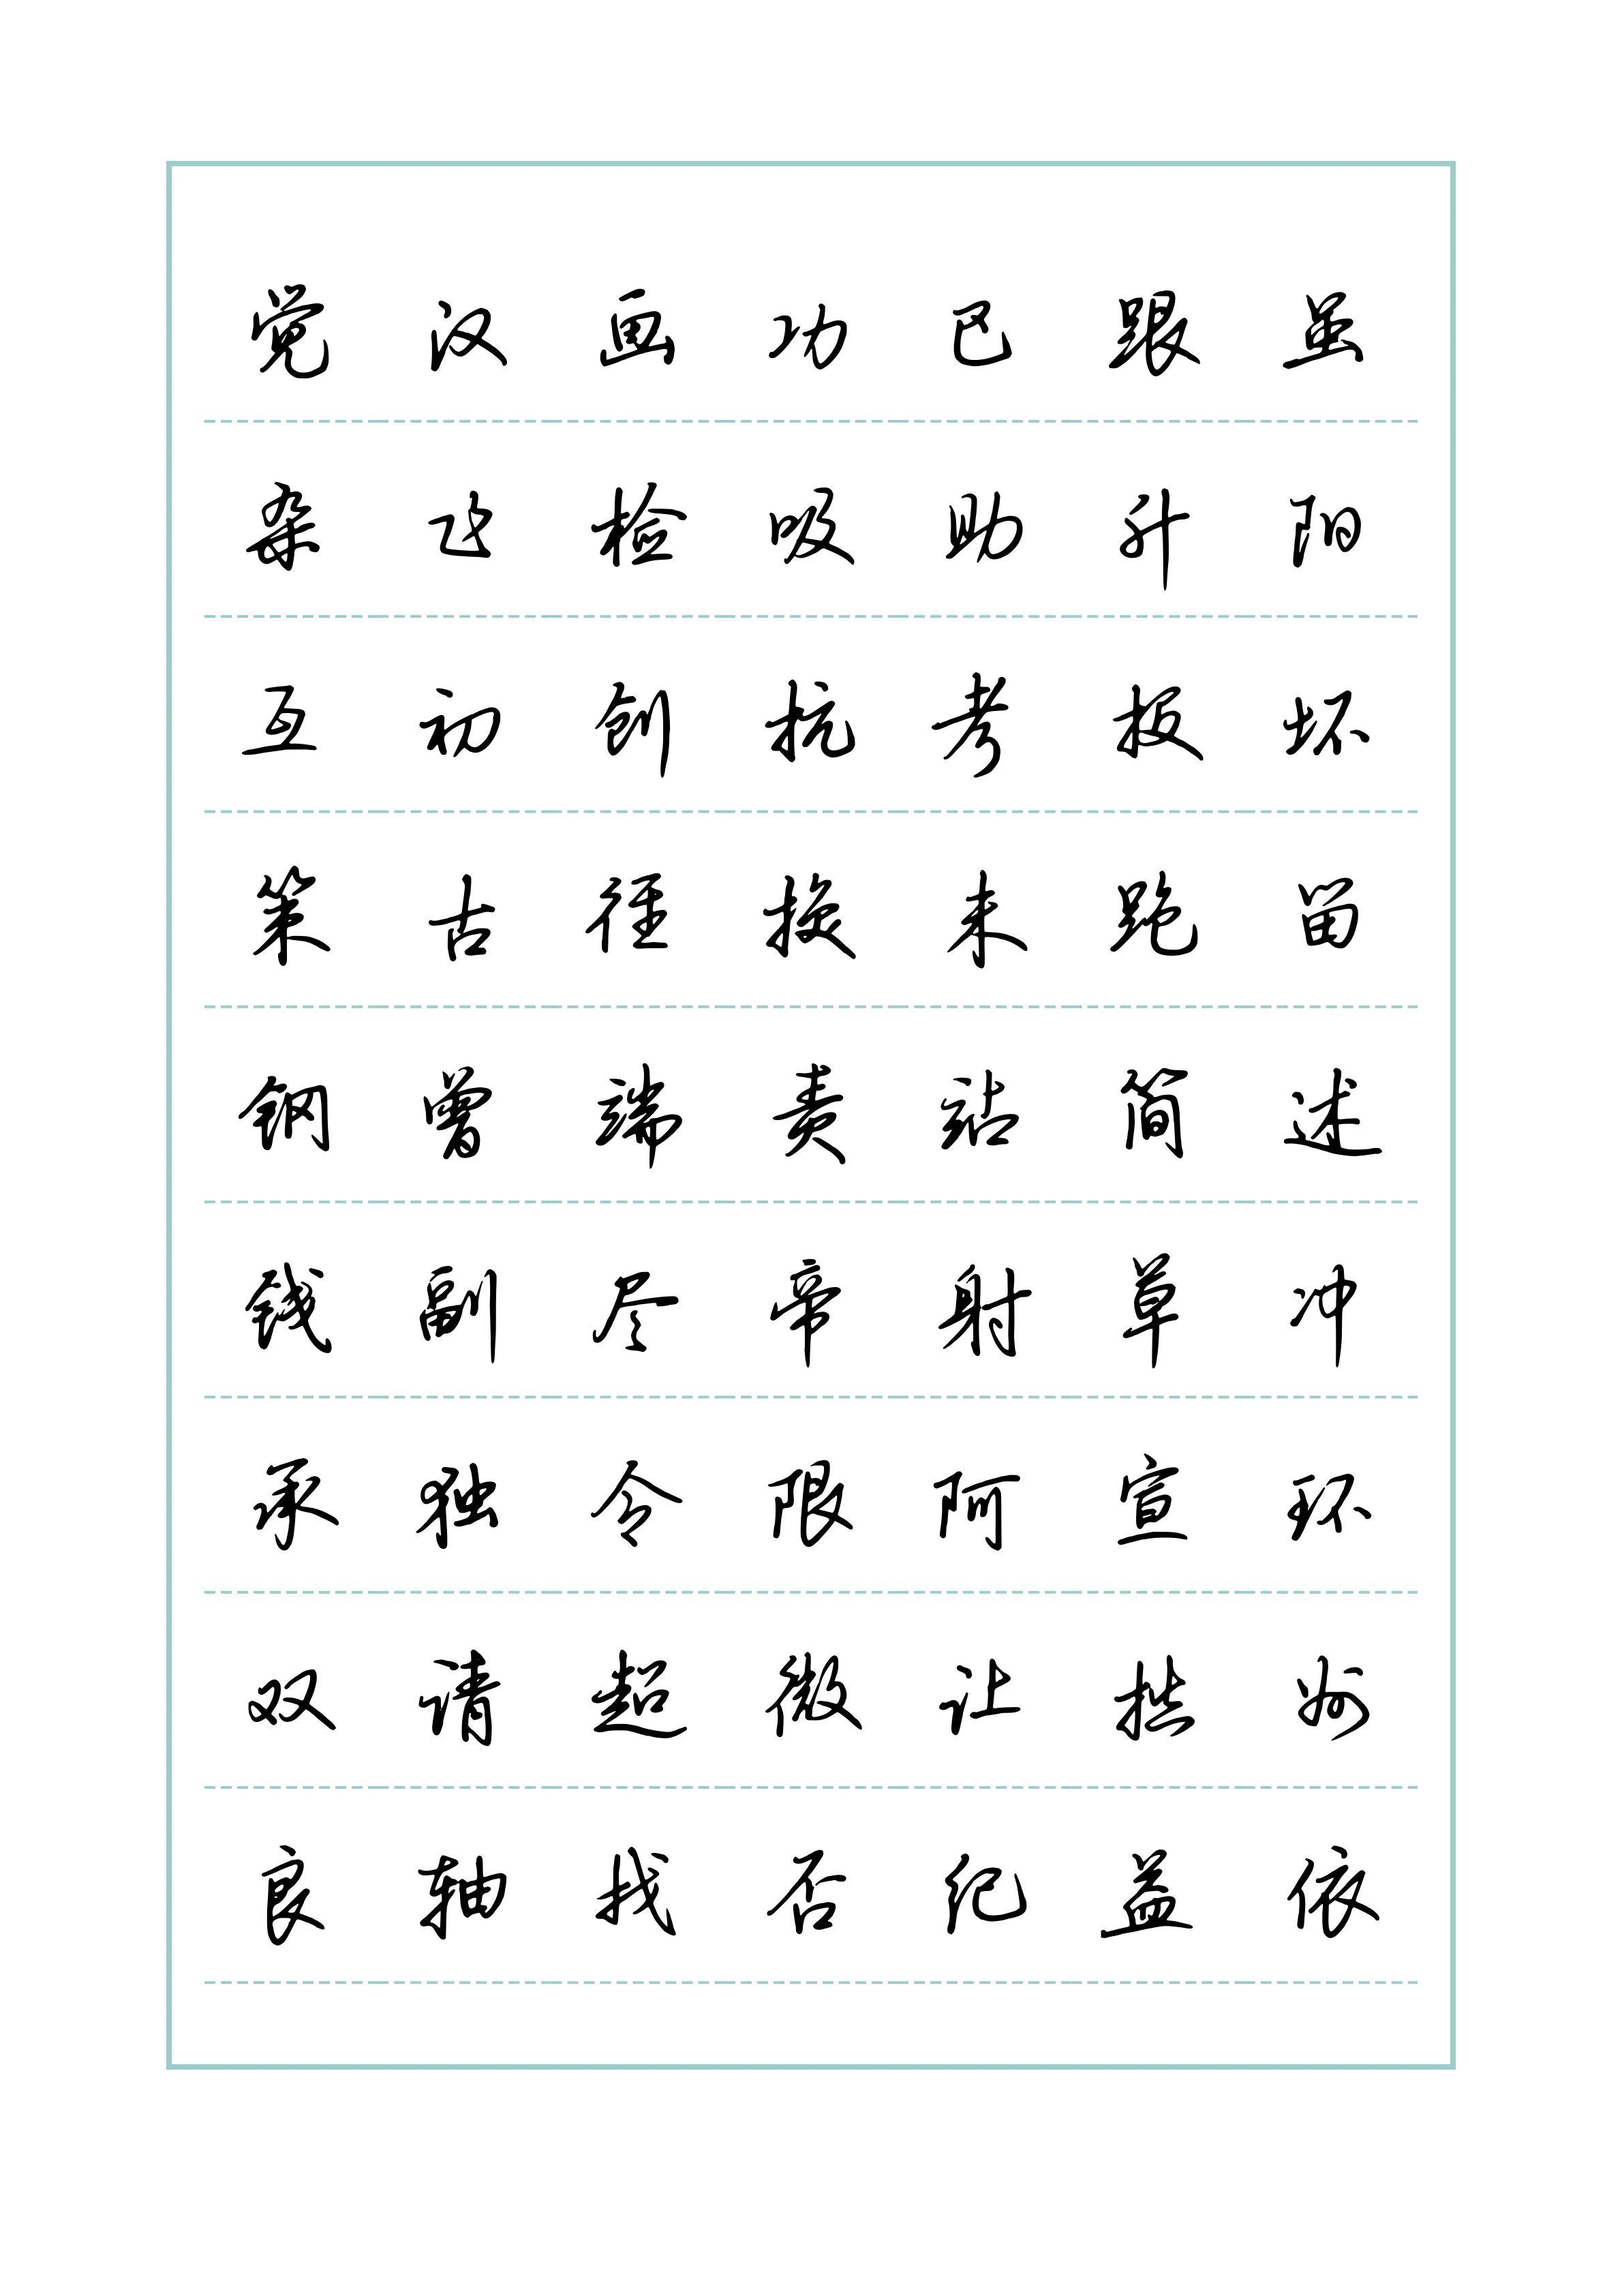 觉汉画功巴跟虽
杂飞检吸助升阳
互初创抗考投坏
策古径换未跑留
钢曾端责站简述
钱副尽帝射草冲
承独令限阿宣环
双请超微让控州
良轴找否纪益依